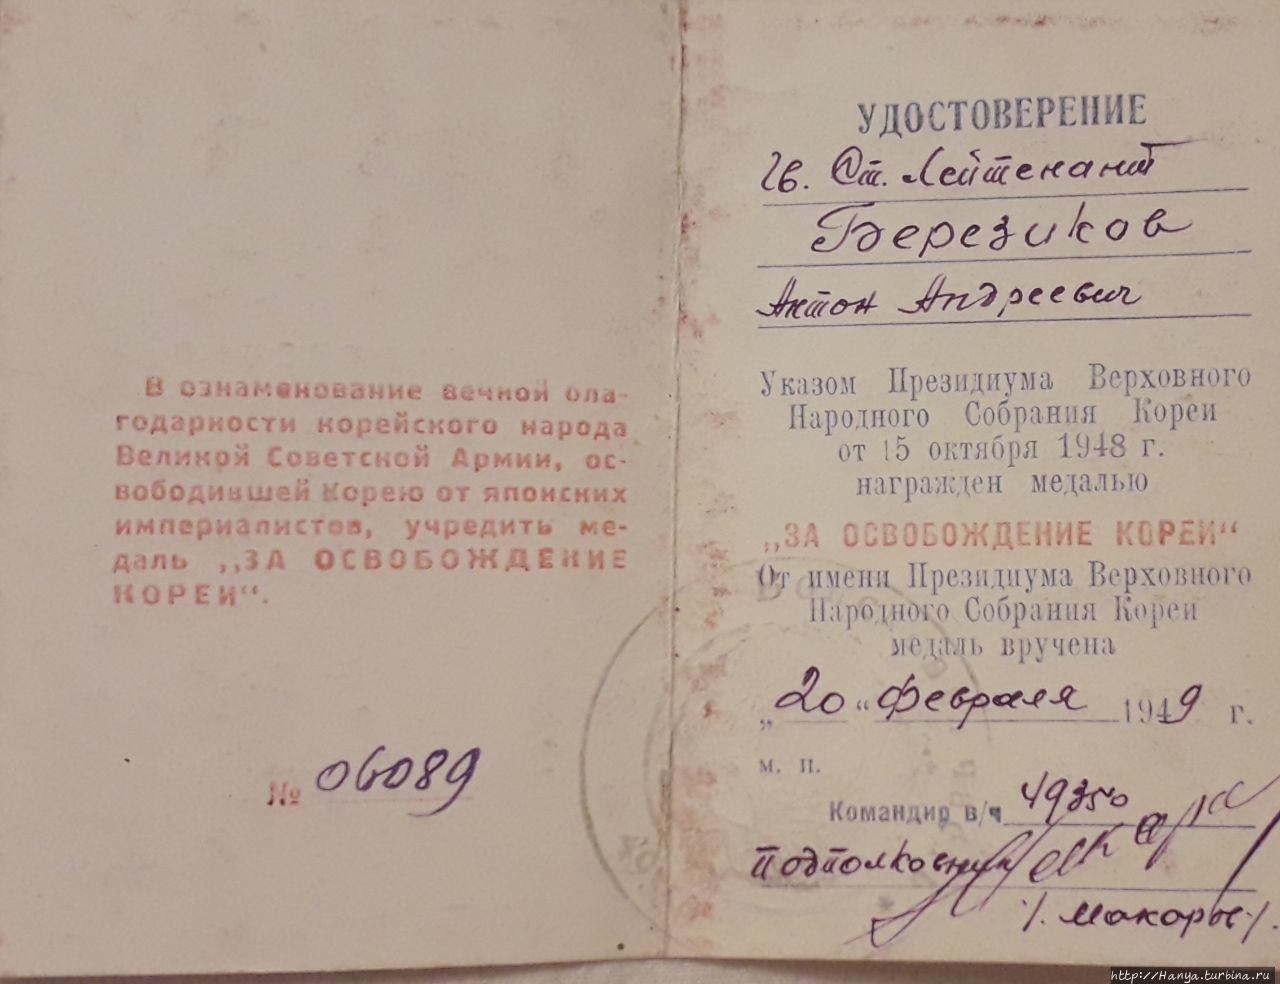 В ознаменование вечной бла-
годарности корейского народа
Великой Советской Армии, ос-
вободившей Корею от японских
империалистов, учредить ме-
даль „ЗА ОСВОБОЖДЕНИЕ
КОРЕИ“.
№ 06089
УДОСТОВЕРЕНИЕ
Гв. Ст. Лейтенант
Березиков
Антон Андреевич
Указом Президиума Верховного
Народного Собрания Кореи
от 15 октября 1948 г.
награжден медалью
„ЗА ОСВОБОЖДЕНИЕ КОРЕИ“
От имени Президиума Верховного
Народного Собрания Кореи
медаль вручена
„20“ Февраля 1949 г.
м. п.
Командир в/ч 49350
подполковник
http://Hanya.turbina.ru